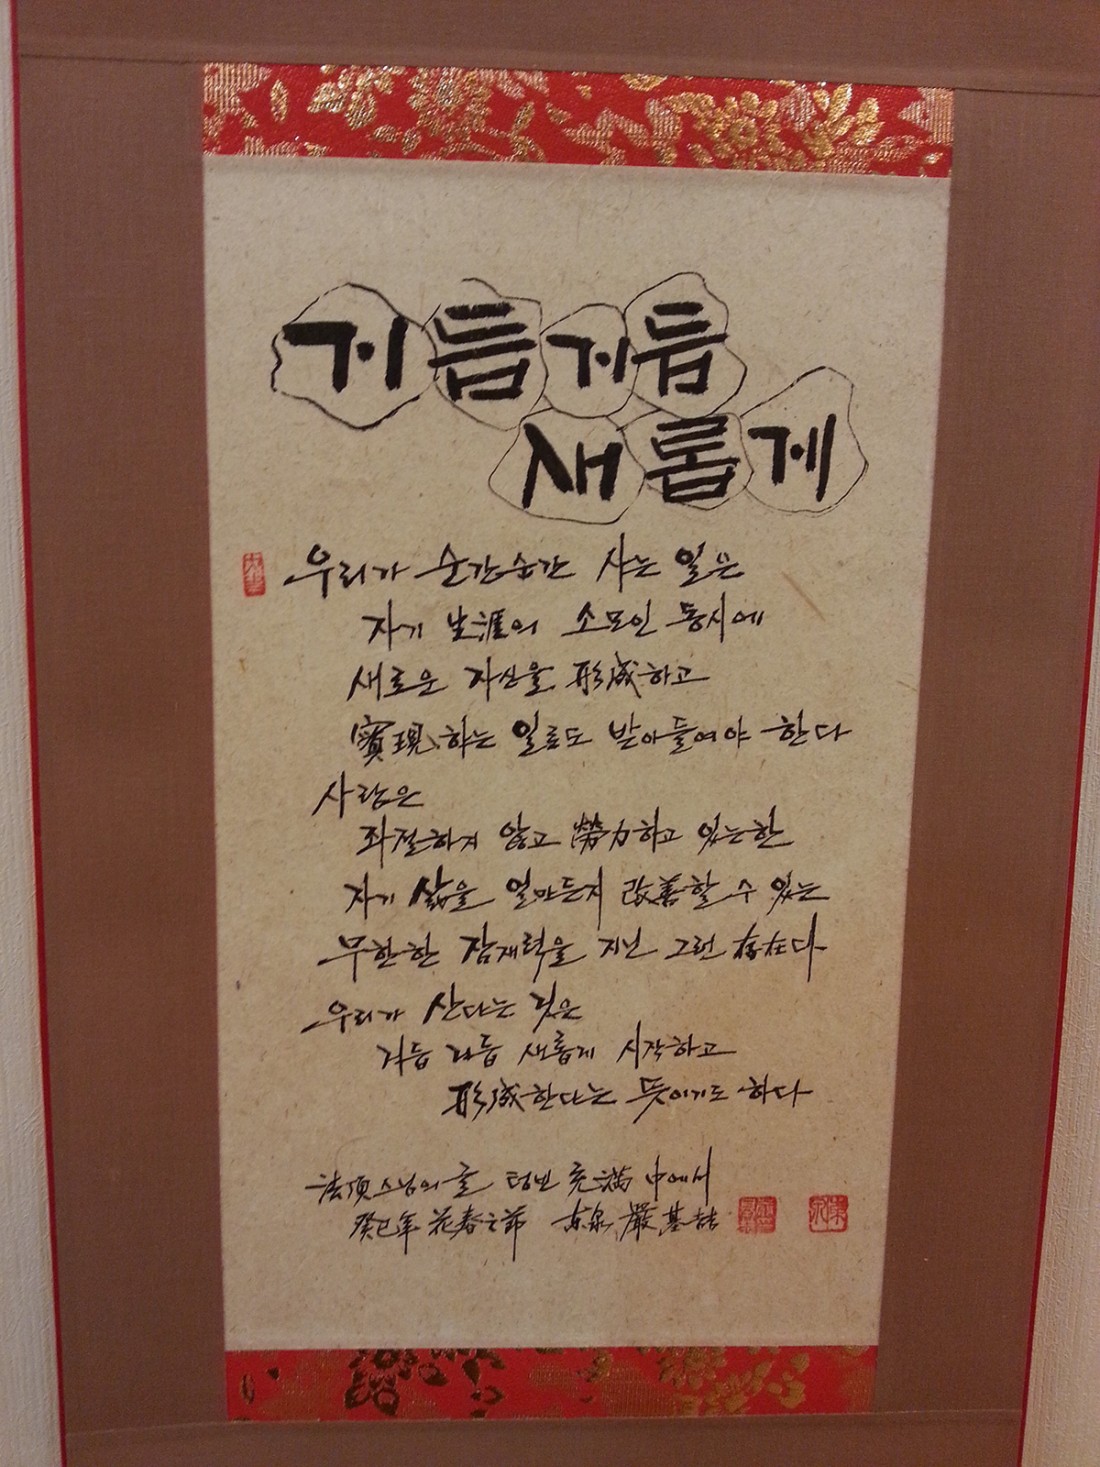 거듭거듭
새롭게
우리가 순간순간 사는 일은
자기 生涯의 소모인 동시에
새로운 자산을 形成하고
實現하는 일로도 받아들여야 한다
사람은
좌절하지 않고 勞力하고 있는한
자기 삶을 얼마든지 改善할 수 있는
무한한 잠재력을 지닌 그런 存在다
우리가 산다는 것은
거듭 거듭 새롭게 시작하고
形成한다는 뜻이기도 하다
法頂스님의 글 텅빈 充滿 中에서
癸巳年 花春之節 古泉 嚴基喆